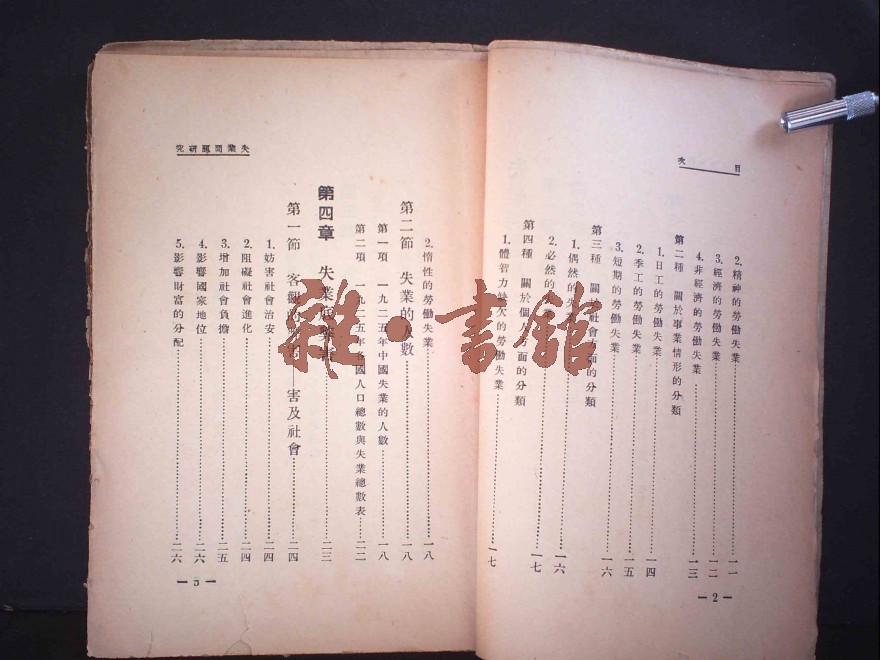 目次
2. 精神的勞働失業……一一
3. 經濟的勞働失業……一二
4. 非經濟的勞働失業……一三
第二種 關於事業情形的分類
1. 日工的勞働失業……一四
2. 季工的勞働失業……一五
3. 短期的勞働失業……一六
第三種 關於社會方面的分類
1. 偶然的失業……一六
2. 必然的……一七
第四種 關於個人方面的分類
1. 體智力缺欠的勞働失業……一七
— 2 —
失業問題研究
2. 惰性的勞働失業……一八
第二節 失業的人數……一八
第一項 一九二五年中國失業的人數……一八
第二項 一九二五年各國人口總數與失業總數表……二二
第四章 失業……二三
第一節 客觀的——害及社會……二四
1. 妨害社會治安……二四
2. 阻礙社會進化……二四
3. 增加社會負擔……二五
4. 影響國家地位……二六
5. 影響財富的分配……二六
— 5 —
雜·書館